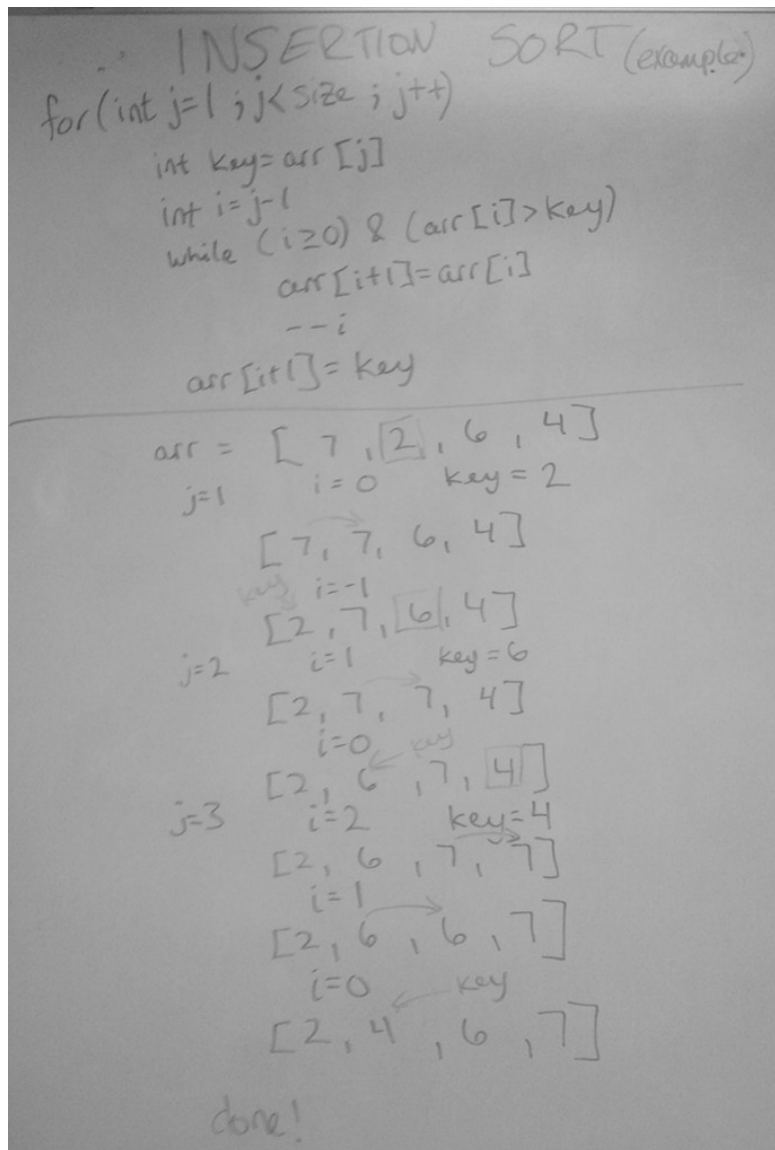 INSERTION SORT (example)
for(int j=1 ; j<size ; j++)
int key=arr [j]
int i=j-1
while (i≥0) & (arr[i]>key)
arr[i+1]=arr[i]
--i
arr[i+1]=key
arr = [ 7 , 2 , 6 , 4 ]
j=1 i=0 key=2
[7, 7, 6, 4]
key i=-1
[2, 7, 6, 4]
j=2 i=1 key=6
[2, 7, 7, 4]
i=0 key
[2, 6, 7, 4]
j=3 i=2 key=4
[2, 6, 7, 7]
i=1
[2, 6, 6, 7]
i=0 key
[2, 4, 6, 7]
done!